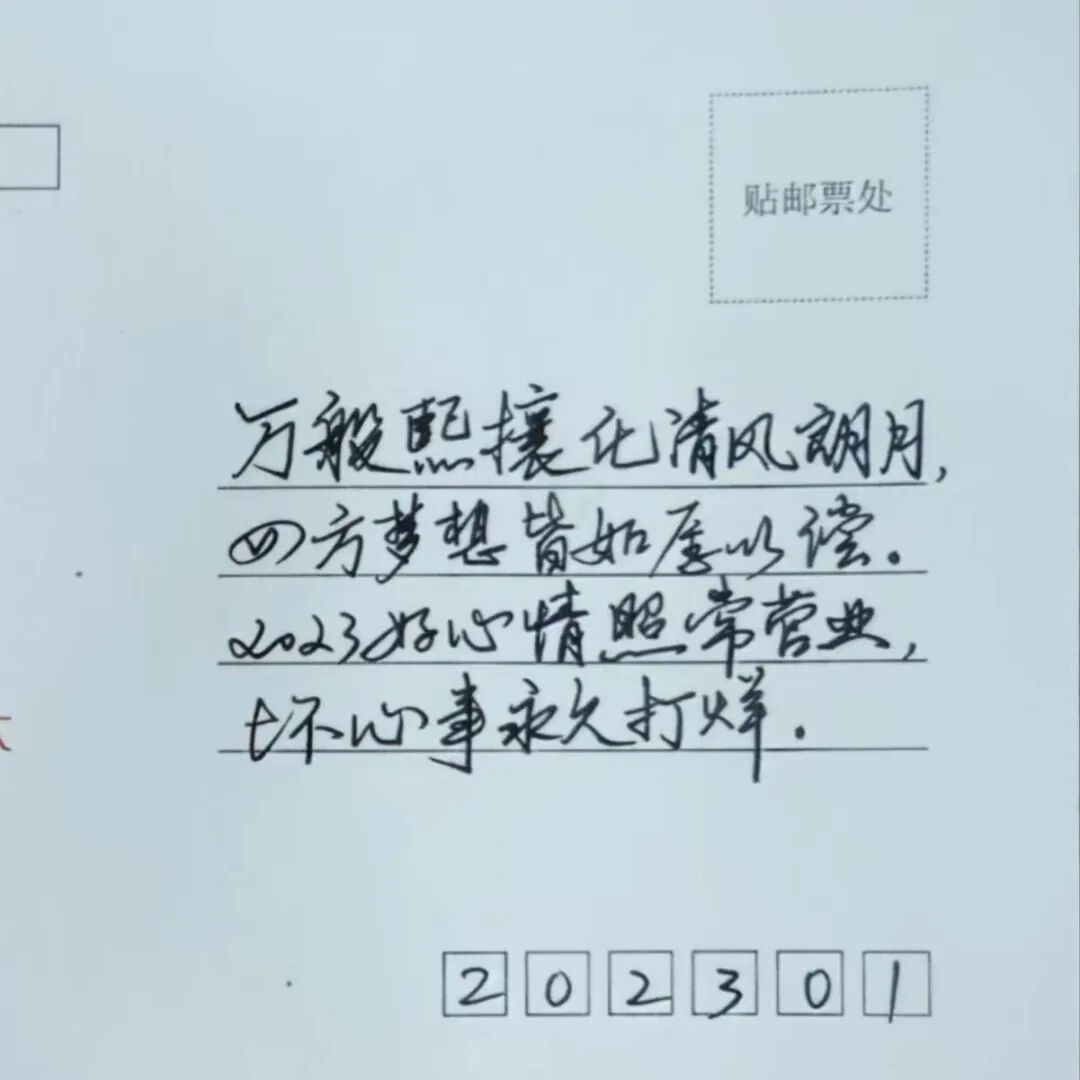 贴邮票处
万般熙攘化清风朗月,
四方梦想皆如愿以偿。
2023好心情照常营业,
坏心事永久打烊.
202301